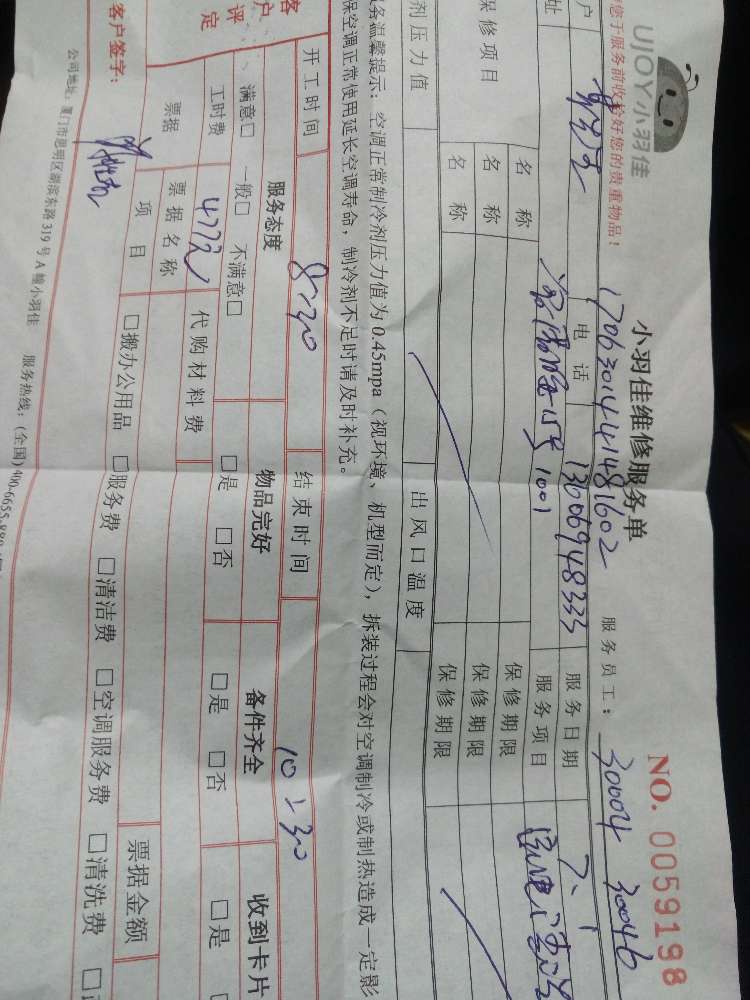 UJOY小羽佳
小羽佳维修服务单
NO. 0059198
您于服务前收拾好您的贵重物品！
17063014414481602
服务员工：
30004 30046
户
电话
13606948333
服务日期
7.1
址
15号1001
服务项目
保修项目
名称
保修期限
名称
保修期限
名称
保修期限
剂压力值
出风口温度
务温馨提示：空调正常制冷剂压力值为0.45mpa（视环境、机型而定），拆装过程会对空调制冷或制热造成一定影
保空调正常使用延长空调寿命，制冷剂不足时请及时补充。
开工时间
8:20
结束时间
10:30
客户评定
服务态度
物品完好
备件齐全
收到卡片
满意□ 一般□ 不满意□
□是 □否
□是 □否
□是
工时费
477元
代购材料费
票据
票据名称
票据金额
项目
□搬办公用品 □服务费 □清洁费 □空调服务费 □清洗费 □
客户签字：
公司地址：厦门市思明区湖滨东路319号A幢小羽佳 服务热线：(全国)400-6655-880